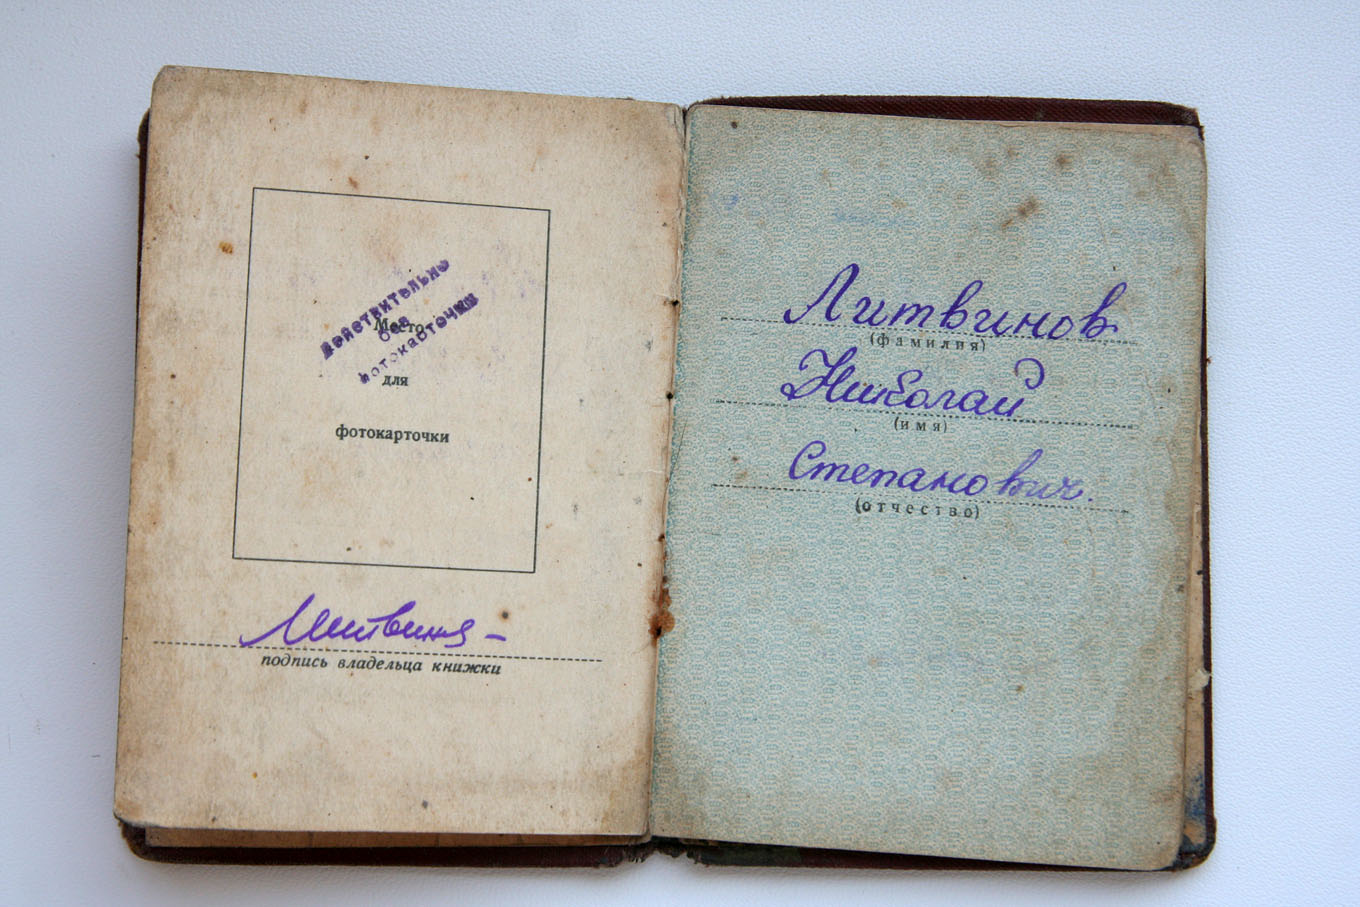 Действительно
без
фотокарточки
Место
для
фотокарточки
подпись владельца книжки
Литвинов
(фамилия)
Николай
(имя)
Степанович.
(отчество)